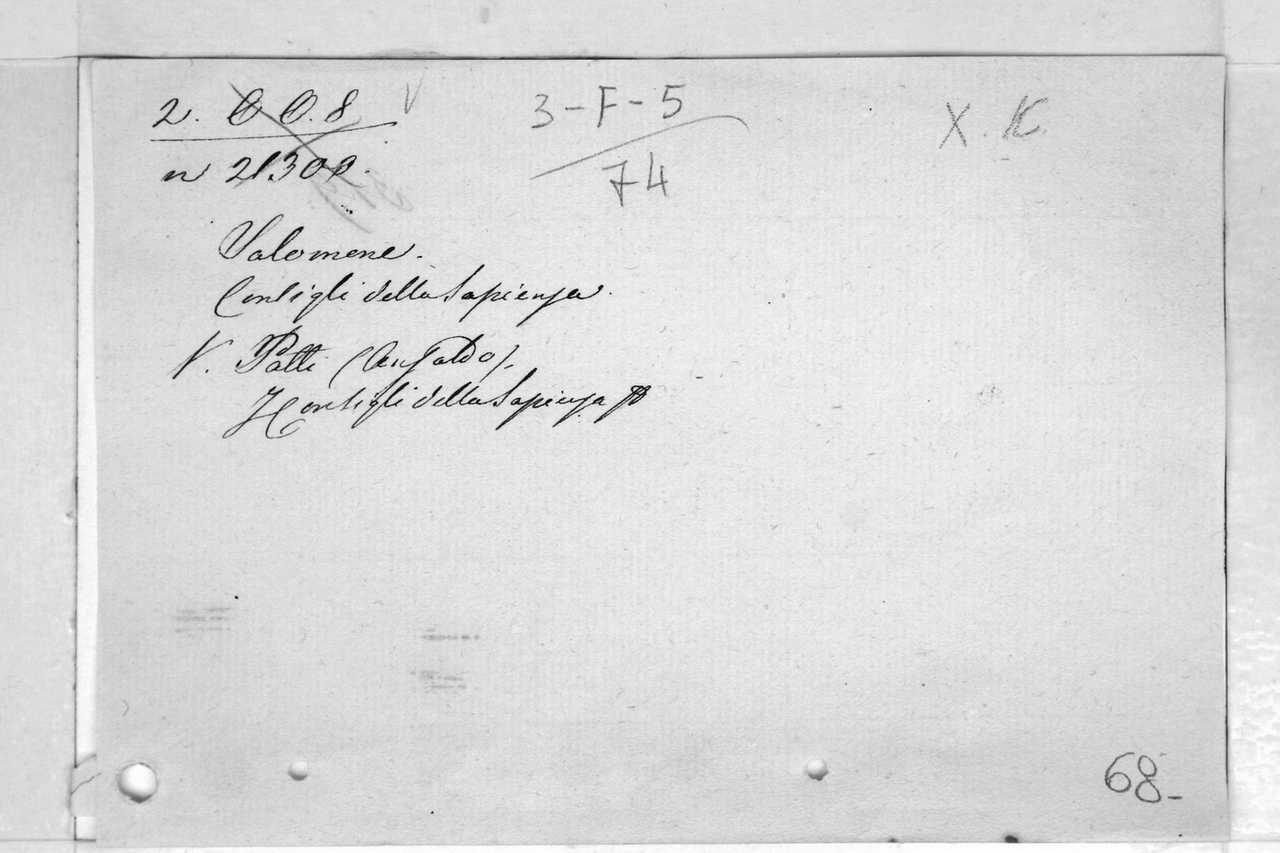 2. O O. 8
3-F-5
74
X. K
n 21300.
Salomone.
Consigli della Sapienza.
V. Patti (Ansaldo).
I Consigli della Sapienza
68-